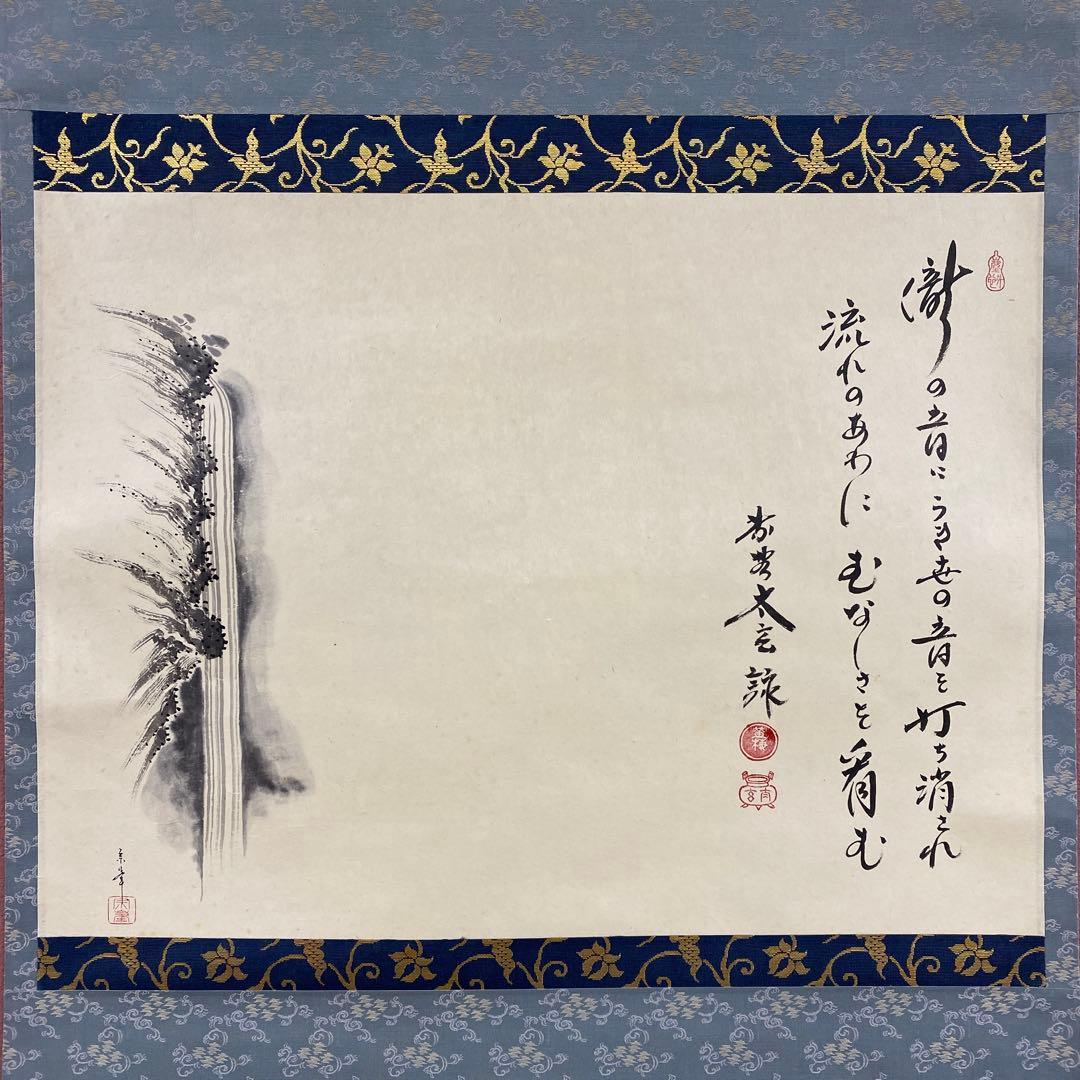 瀧の音にうき世の音を打ち消され
流れのあわにむなしさを看む
太玄 詠